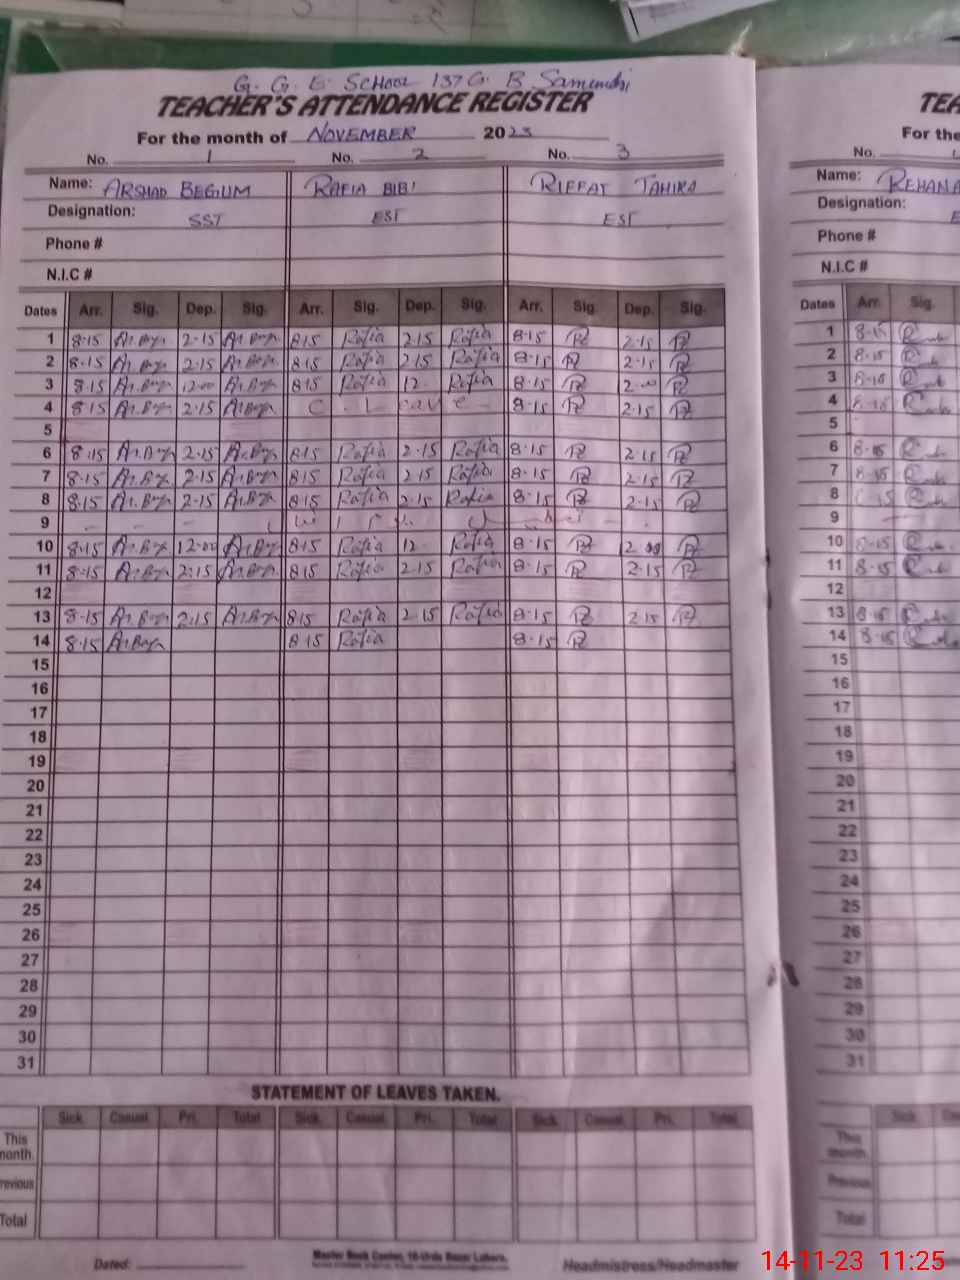 G. G. E. SCHOOL 137 G. B Samundri
TEACHER'S ATTENDANCE REGISTER TEA
For the month of NOVEMBER 2023 For the
No. 1 No. 2 No. 3 No.
Name: ARSHAD BEGIUM RAFIA BIBI RIFFAT TAHIRA Name: REHANA
Designation: SST EST EST Designation: E
Phone # Phone #
N.I.C # N.I.C #
Dates Arr. Sig. Dep. Sig. Arr. Sig. Dep. Sig. Arr. Sig. Dep. Sig. Dates Arr. Sig.
1 8-15 Ar.Bgm 2-15 Ar.Bgm 815 Rafia 2.15 Rafia 8-15 2.15 1 8-15
2 8.15 Ar.Bgm 2.15 Ar.Bgm 815 Rafia 2.15 Rafia 8.15 2.15 2 8.15
3 8.15 Ar.Bgm 12.00 Ar.Bgm 815 Rafia 12. Rafia 8.15 3 8-15
4 8.15 Ar.Bgm 2.15 Ar.Bgm C. Leave 8.15 2.15 4
5 5
6 8.15 Ar.Bgm 2.15 Ar.Bgm 815 Rafia 2.15 Rafia 8-15 2.15 6
7 8.15 Ar.Bgm 2.15 Ar.Bgm 815 Rafia 2.15 Rafia 8.15 2.15 7
8 8.15 Ar.Bgm 2.15 Ar.Bgm 815 Rafia 2.15 Rafia 8-15 2.15 8
9 9
10 8.15 Ar.Bgm 12.00 Ar.Bgm 815 Rafia 12. Rafia 8.15 12.00 10 8-15
11 8.15 Ar.Bgm 2.15 Ar.Bgm 815 Rafia 2.15 Rafia 8.15 2.15 11 8-15
12 12
13 8.15 Ar.Bgm 2.15 Ar.Bgm 815 Rafia 2.15 Rafia 8.15 2.15 13
14 8.15 Ar.Bgm 8.15 Rafia 8.15 14 8.15
15 15
16 16
17 17
18 18
19 19
20 20
21 21
22 22
23 23
24 24
25 25
26 26
27 27
28 28
29 29
30 30
31 31
STATEMENT OF LEAVES TAKEN.
Sick. Casual. Pri. Total Sick. Casual. Pri. Total Sick. Casual. Pri. Total Sick.
This month. This month.
revious Previous
Total Total
Dated: Master Book Center, 16-Urdu Bazar Lahore. Headmistress/Headmaster
14-11-23 11:25